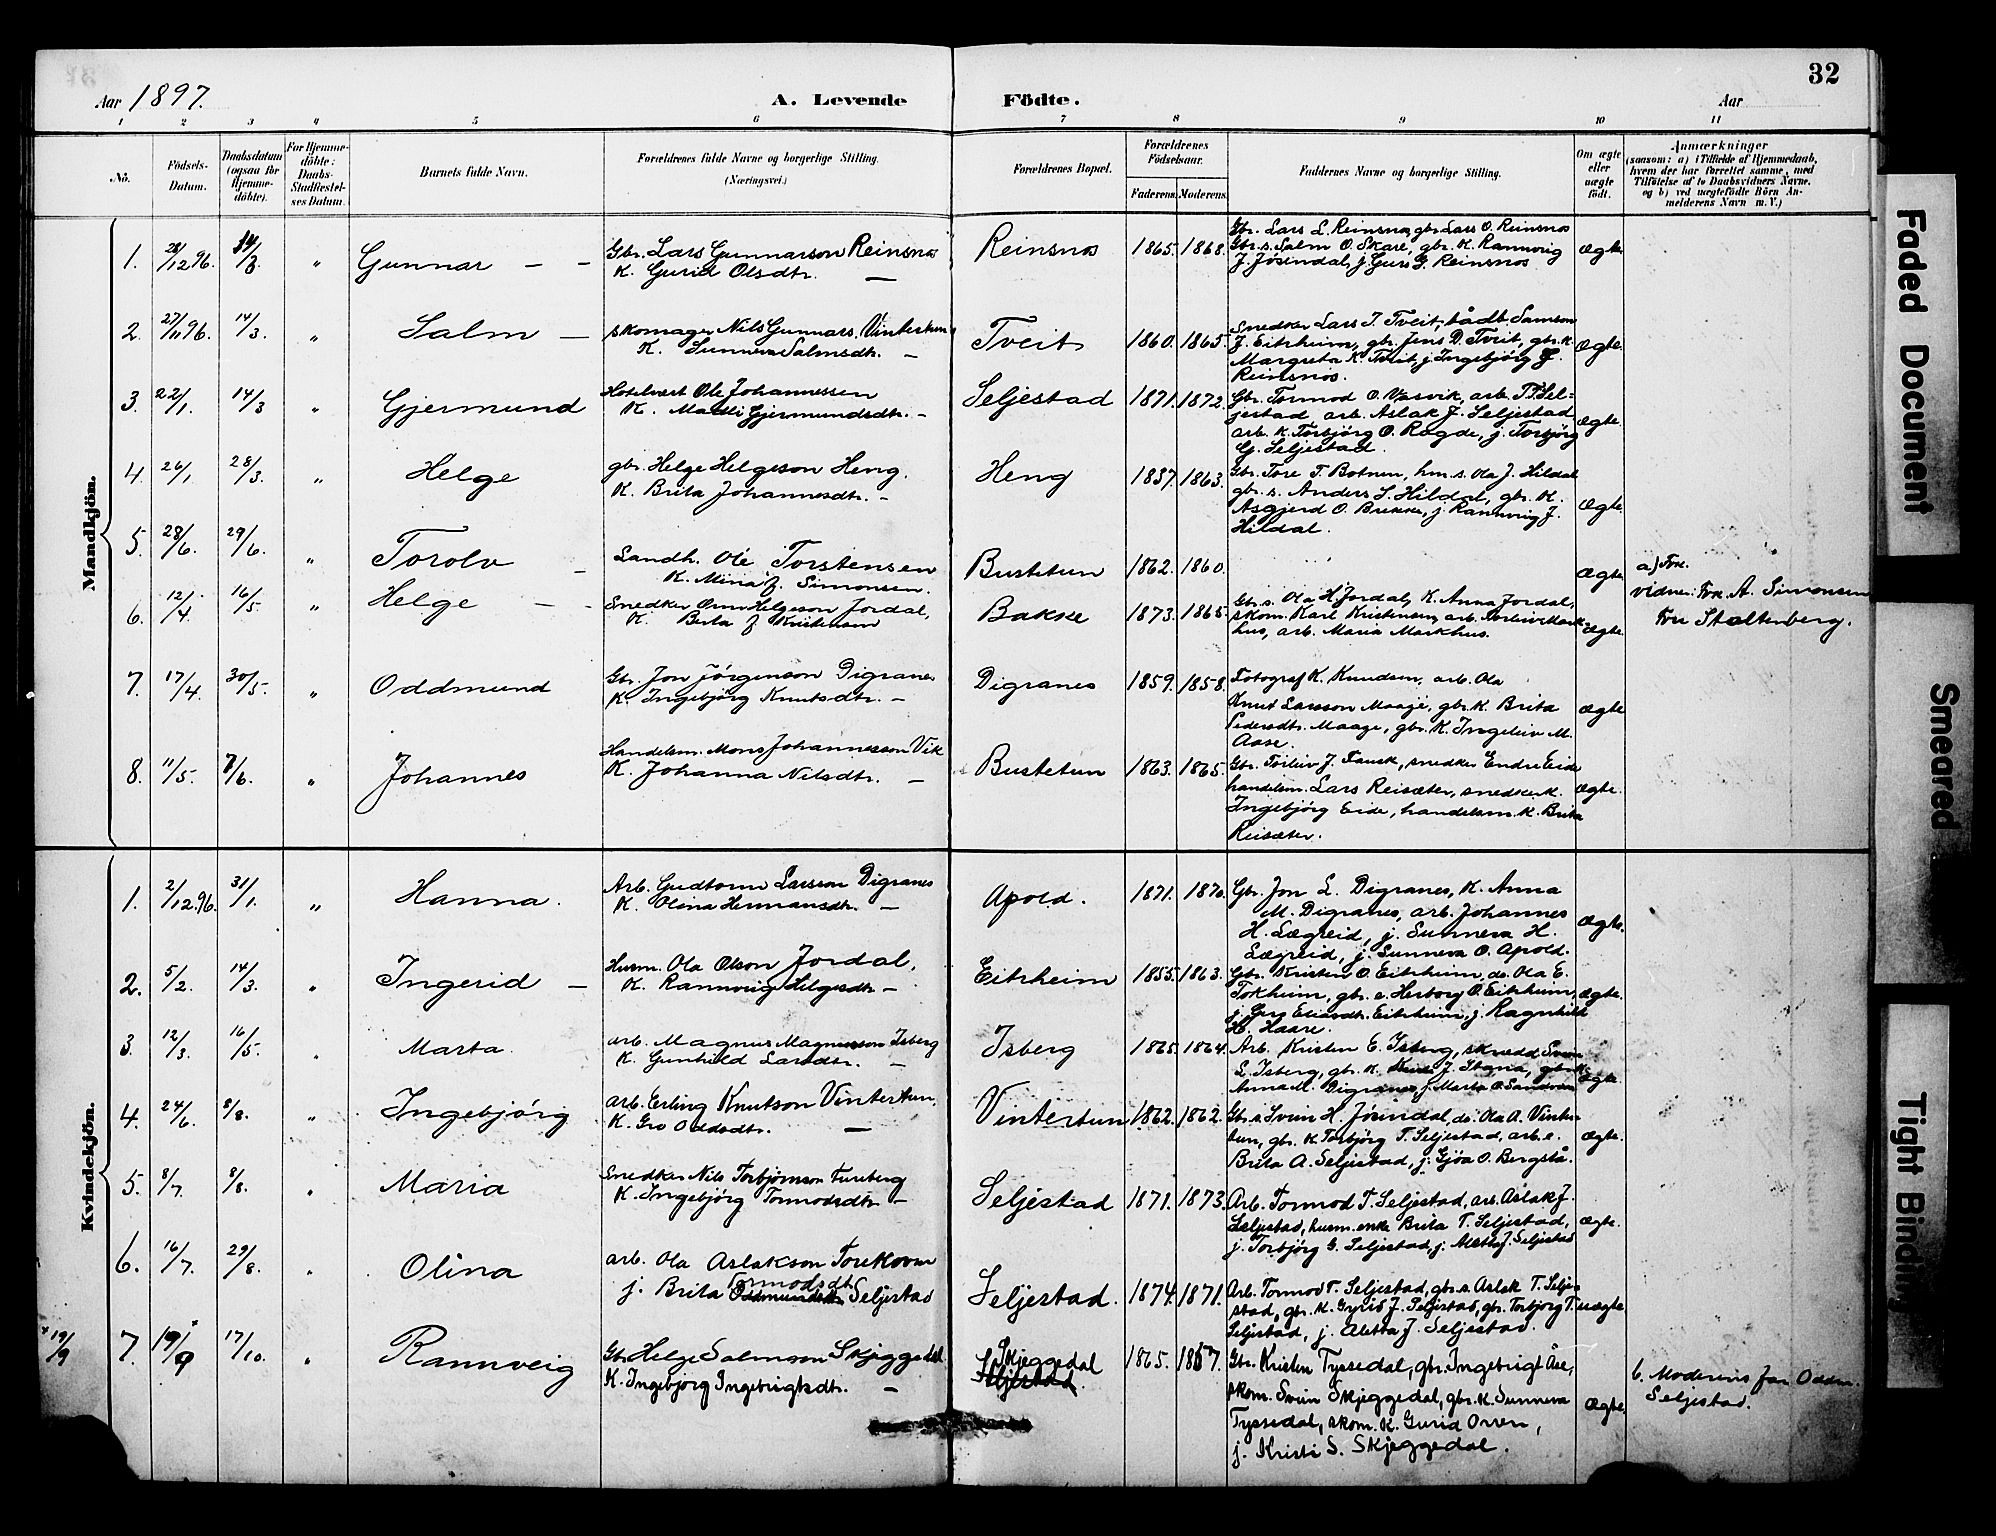 Aar 1897.
A. Levende Födte.
Aar
32
1 2 3 4 5 6 7 8 9 10 11
No.
Födsels-Datum.
Daabsdatum (ogsaa for Hjemme-döbte).
For Hjemme-döbte: Daabs-Stadfæstel-ses Datum.
Barnets fulde Navn.
Forældrenes fulde Navne og borgerlige Stilling. (Næringsvei.)
Forældrenes Bopæl.
Forældrenes Födselsaar.
Faderens. Moderens.
Faddernes Navne og borgerlige Stilling.
Om ægte eller uægte födt.
Anmærkninger
(saasom: a) i Tilfælde af Hjemmedaab,
hvem der har forrettet samme, med
Tilföielse af to Daabsvidners Navne.
og b) ved uægtefödte Börn An-
melderens Navn m. V.)
Mandkjön.
1. 28/12 96. 14/3. " Gunnar — —
Gbr. Lars Gunnarson Reinsnos
K. Gurid Olsdtr. —
Reinsnos 1865. 1868.
Gbr. Lars L. Reinsnos, gbr. Lars O. Reinsnos
Gbr. s. Salm O. Skare, gbr. K. Rannveig
J. Jösendal, j. Guri G. Reinsnos
ægte
2. 27/11 96. 14/3. " Salm —
skomager Nils Gunnars. Vintertun
K. Sunneva Salmsdtr. —
Tveit 1860. 1865.
Snedker Lars T. Tveit, bådb. Samson
J. Eitrheim, gbr. Jens D. Tveit, gbr. K.
Margreta K. Tveit, j. Ingebjörg G.
Reinsnos.
ægte.
3. 22/1. 14/3 " Gjermund
Hotelvert Ole Johannessen
K. Madli Gjermundsdtr. —
Seljestad 1871. 1872.
Gbr. Tormod O. Vasvik, arb. T. T. Sel=
jestad, arb. Aslak J. Seljestad
arb. K. Torbjörg O. Ragde, j. Torbjörg
G. Seljestad.
ægte.
4. 26/1 28/3. " Helge
gbr. Helge Helgeson Heng.
K. Brita Johannesdtr. —
Heng 1837. 1863.
Gbr. Tore T. Botnen, hm. s. Ola J. Hildal
gbr. s. Anders S. Hildal, gbr. K.
Asgjerd O. Brekke, j. Rannveig J.
Hildal.
ægte.
5. 28/6. 29/6. " Torolv —
Landh. Ole Torstensen
K. Mina f. Simonsen.
Bustetun 1862. 1860.
ægte
a) Frk.
vidner: Frk. A. Simonsen
Fru Stoltenberg.
6. 12/4. 16/5. " Helge — —
Snedker Orm Helgeson Jordal,
K. Berta f. Kristensen
Bakke 1873. 1865.
Gbr. s. Ola H. Jordal, K. Anna Jordal,
skom. Karl Kristensen, arb. Torleiv Mark-
hus, arb. Maria Markhus.
ægte
7. 17/4. 30/5. " Oddmund
Gbr. Jon Jörgenson Digranes
K. Ingebjörg Knutsdtr. —
Digranes 1859. 1858.
Fotograf K. Knudsen, arb. Ola
Knut Larsson Maage, gbr. K. Brita
Pedersdtr. Maage, gbr. K. Ingeleiv M.
Aase.
ægte
8. 11/5. 7/6. " Johannes
Handelsm. Mons Johannesson Vik
K. Johanna Nilsdtr. —
Bustetun 1863. 1865.
Gbr. Torleiv J. Fausk, snedker Endre Eide
handelsm. Lars Reisæter, snedker K.
Ingebjörg Eide, handelsm. K. Brita
Reisæter.
ægte.
Kvindekjön.
1. 2/12 96. 31/1. " Hanna.
Arb. Gudtorm Larsson Digranes
K. Olina Hermansdtr. —
Apold. 1871. 1870.
Gbr. Jon L. Digranes, K. Anna
M. Digranes, arb. Johannes
H. Lægreid, j. Sunneva H.
Lægreid, j. Sunneva O. Apold.
ægte.
2. 5/2. 14/3. " Ingerid —
Husm. Ola Olson Jordal,
K. Rannveig Helgesdtr. —
Eitrheim 1855. 1863.
Gbr. Kristen O. Eitrheim, do. Ola E.
Tokheim, gbr. e. Herborg O. Eitrheim,
j. Guro Eliasdtr. Eitrheim, j. Ragnhild
H. Haare.
ægte.
3. 12/3. 16/5. " Marta.
arb. Magnus Magnusson Isberg
K. Gunhild Larsdtr. —
Isberg 1865. 1864.
Arb. Kristen E. Isberg, skrædd. Svein
L. Isberg, gbr. K. J. Stana, gbr. K.
Anna M. Digranes, j. Marta O. Sandven
ægte.
4. 24/6. 8/8. " Ingebjörg
arb. Erling Knutson Vintertun.
K. Gro Oddsdtr. —
Vintertun 1862. 1862.
Gbr. s. Svein H. Jösendal, do. Ola A. Vinter-
tun, gbr. K. Torbjörg T. Seljestad, arb. e.
Brita A. Seljestad, j. Gjöa O. Bergstø.
ægte.
5. 8/7. 8/8. " Maria
Snedker Nils Torbjörnson Fureberg
K. Ingebjörg Tormodsdtr. —
Seljestad 1871. 1873.
Arb. Tormod T. Seljestad, arb. Aslak J.
Seljestad, husm. enke Brita T. Seljestad,
j. Torbjörg G. Seljestad, j. Aletta J. Seljestad
ægte.
6. 16/7. 29/8. " Olina
arb. Ola Aslakson
j. Brita Tormodsdtr. Seljestad
Seljestad. 1874. 1871.
Arb. Tormod T. Seljestad, gbr. s. Aslak T. Selje-
stad, gbr. K. Gyrid J. Seljestad, gbr. Torbjörg T.
Seljestad, j. Aletta J. Seljestad.
uægte
* 19/9 7. 19/9 17/10. " Rannveig
Gbr. Helge Salmson Skjeggedal
K. Ingebjörg Ingebrigtsdtr. —
Skjeggedal
Seljestad.
1865. 1867.
Gbr. Kristen Tyssedal, gbr. Ingebrigt Åse,
skom. Svein Skjeggedal, gbr. K. Sunneva
Tyssedal, skom. K. Gurid Orren,
j. Kristi S. Skjeggedal.
ægte.
b. Moderens far Oddm.
Seljestad.
Faded Document
Smeared
Tight Binding